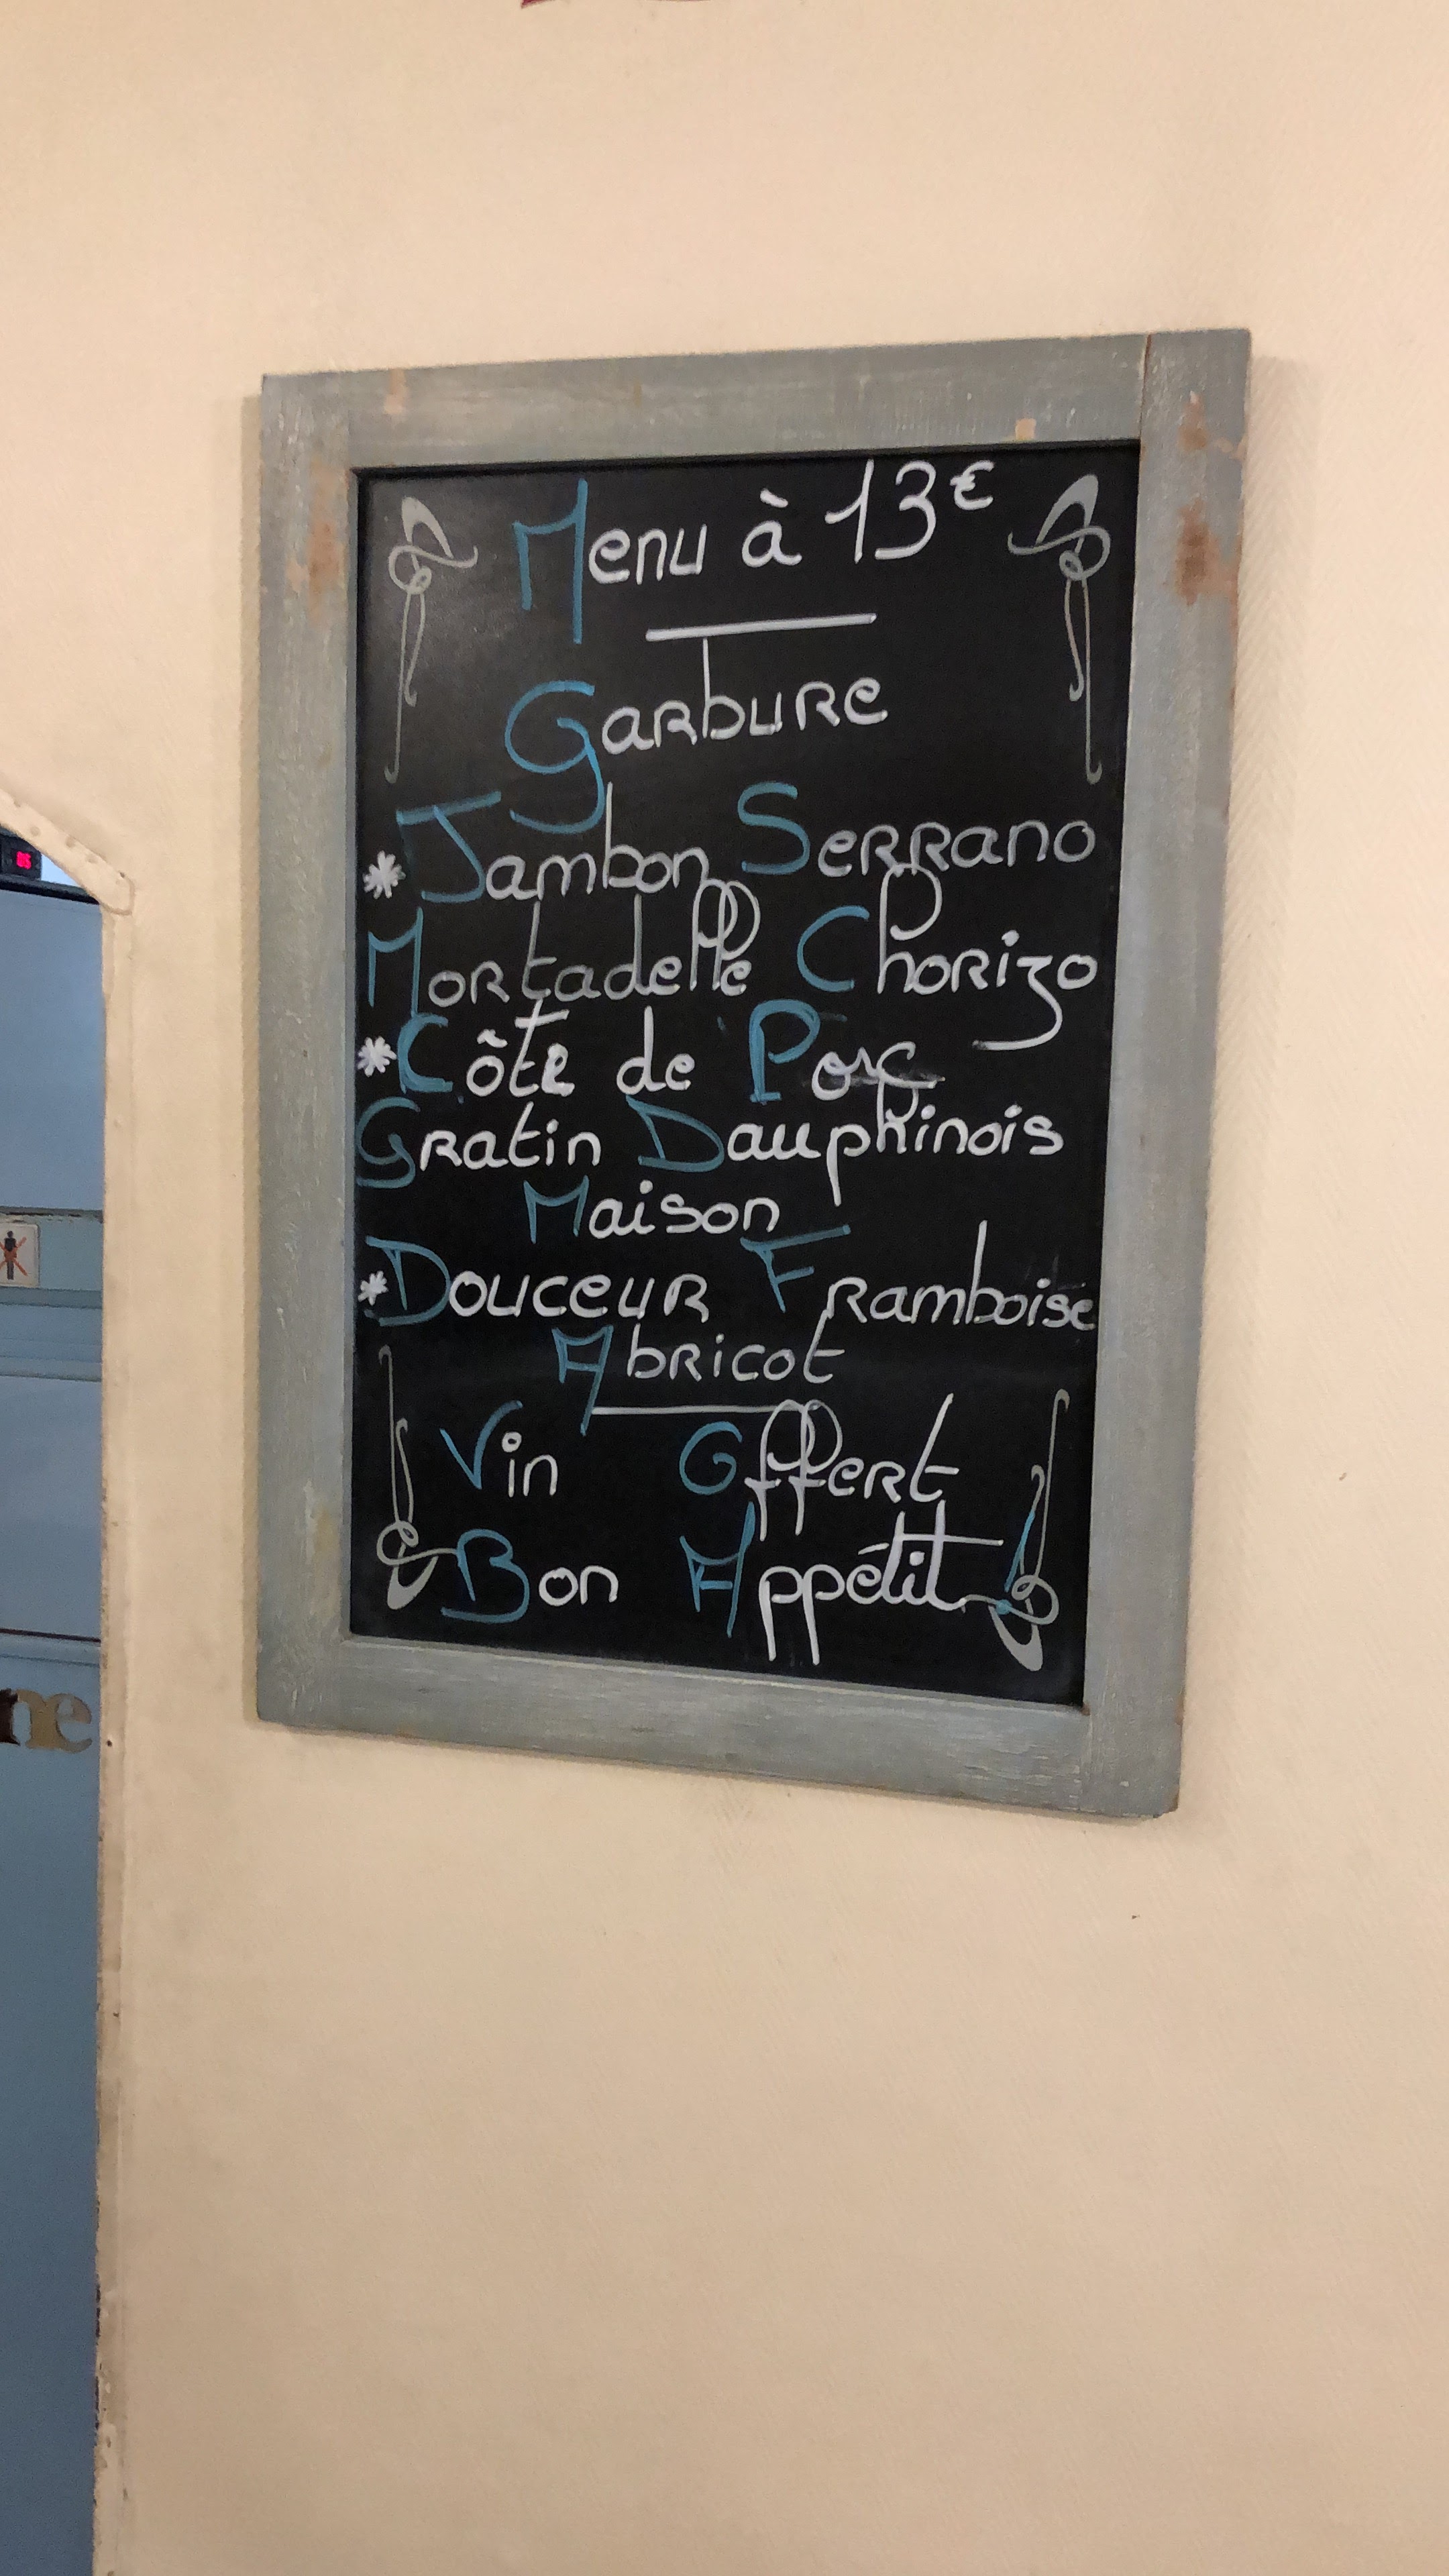 Menu à 13€
Garbure
* Jambon Serrano
Mortadelle Chorizo
* Côte de Porc
Gratin Dauphinois
Maison
* Douceur Framboise
Abricot
Vin Offert
Bon Appétit !
ne